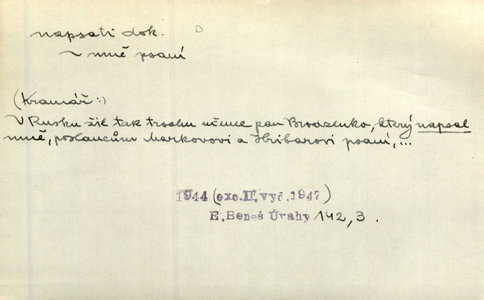 napsati dok.
~ mně psaní
(Kramář:)
V Rusku žil tak trochu ... pan Brodzenko, který napsal
mně, poslancům Markovovi a Hribarovi psaní,...
1944 (exc.II.vyd.1947)
E.Beneš Úvahy 142,3.